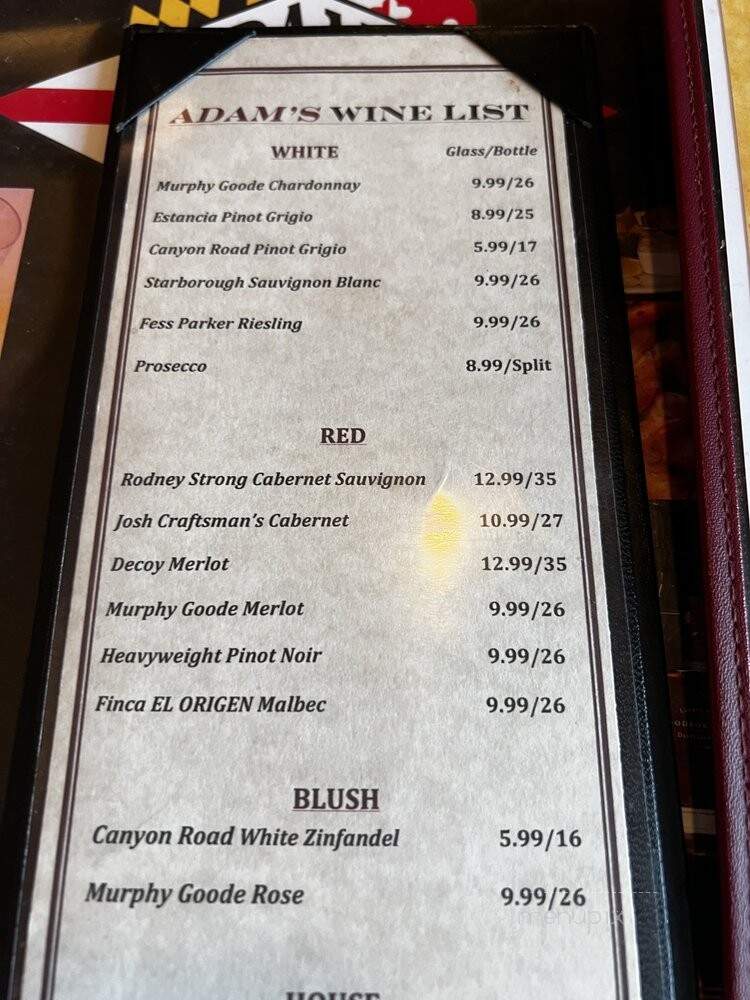 ADAM'S WINE LIST
WHITE Glass/Bottle
Murphy Goode Chardonnay 9.99/26
Estancia Pinot Grigio 8.99/25
Canyon Road Pinot Grigio 5.99/17
Starborough Sauvignon Blanc 9.99/26
Fess Parker Riesling 9.99/26
Prosecco 8.99/Split
RED
Rodney Strong Cabernet Sauvignon 12.99/35
Josh Craftsman's Cabernet 10.99/27
Decoy Merlot 12.99/35
Murphy Goode Merlot 9.99/26
Heavyweight Pinot Noir 9.99/26
Finca EL ORIGEN Malbec 9.99/26
BLUSH
Canyon Road White Zinfandel 5.99/16
Murphy Goode Rose 9.99/26
HOUSE